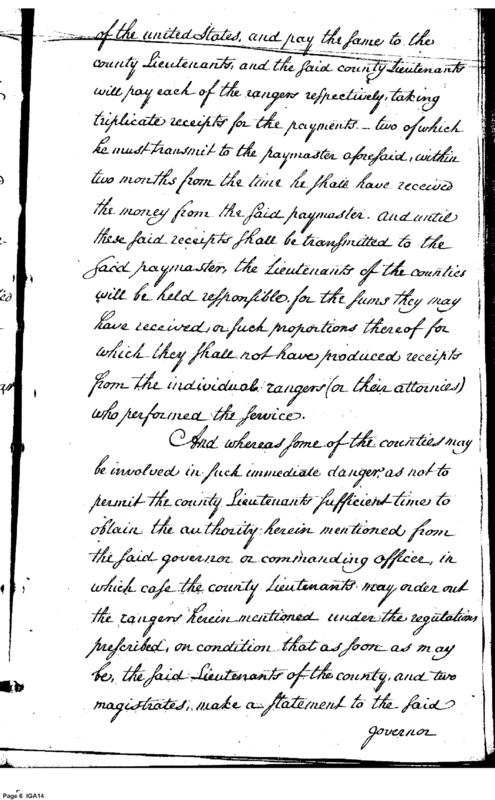 of the united States, and pay the same to the
county Lieutenants, and the said county Lieutenants
will pay each of the rangers respectively, taking
triplicate receipts for the payments – two of which
he must transmit to the paymaster aforesaid, within
two months from the time he shall have received
the money from the said paymaster. and until
these said receipts shall be transmitted to the
said paymaster, the Lieutenants of the counties
will be held responsible, for the sums they may
have received, or such proportions thereof for
which they shall not have produced receipts
from the individual rangers (or their attornies)
who performed the service.
And whereas some of the counties may
be involved in such immediate danger, as not to
permit the county Lieutenants sufficient time to
obtain the authority herein mentioned from
the said governor or commanding officer, in
which case the county Lieutenants may order out
the rangers herein mentioned under the regulations
prescribed, on condition that as soon as may
be, the said Lieutenants of the county, and two
magistrates, make a statement to the said
governor
Page 6 IGA14